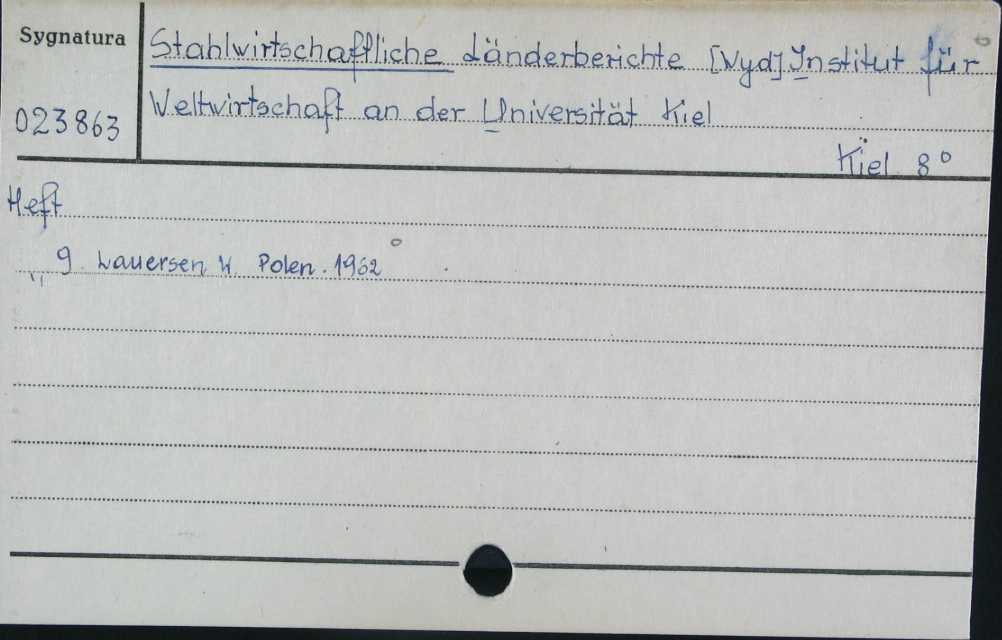 Sygnatura
023863
Stahlwirtschaftliche Länderberichte [Wyd] Institut für
Weltwirtschaft an der Universität Kiel
Kiel 8°
Heft
" 9. Lauersen W. Polen. 1962